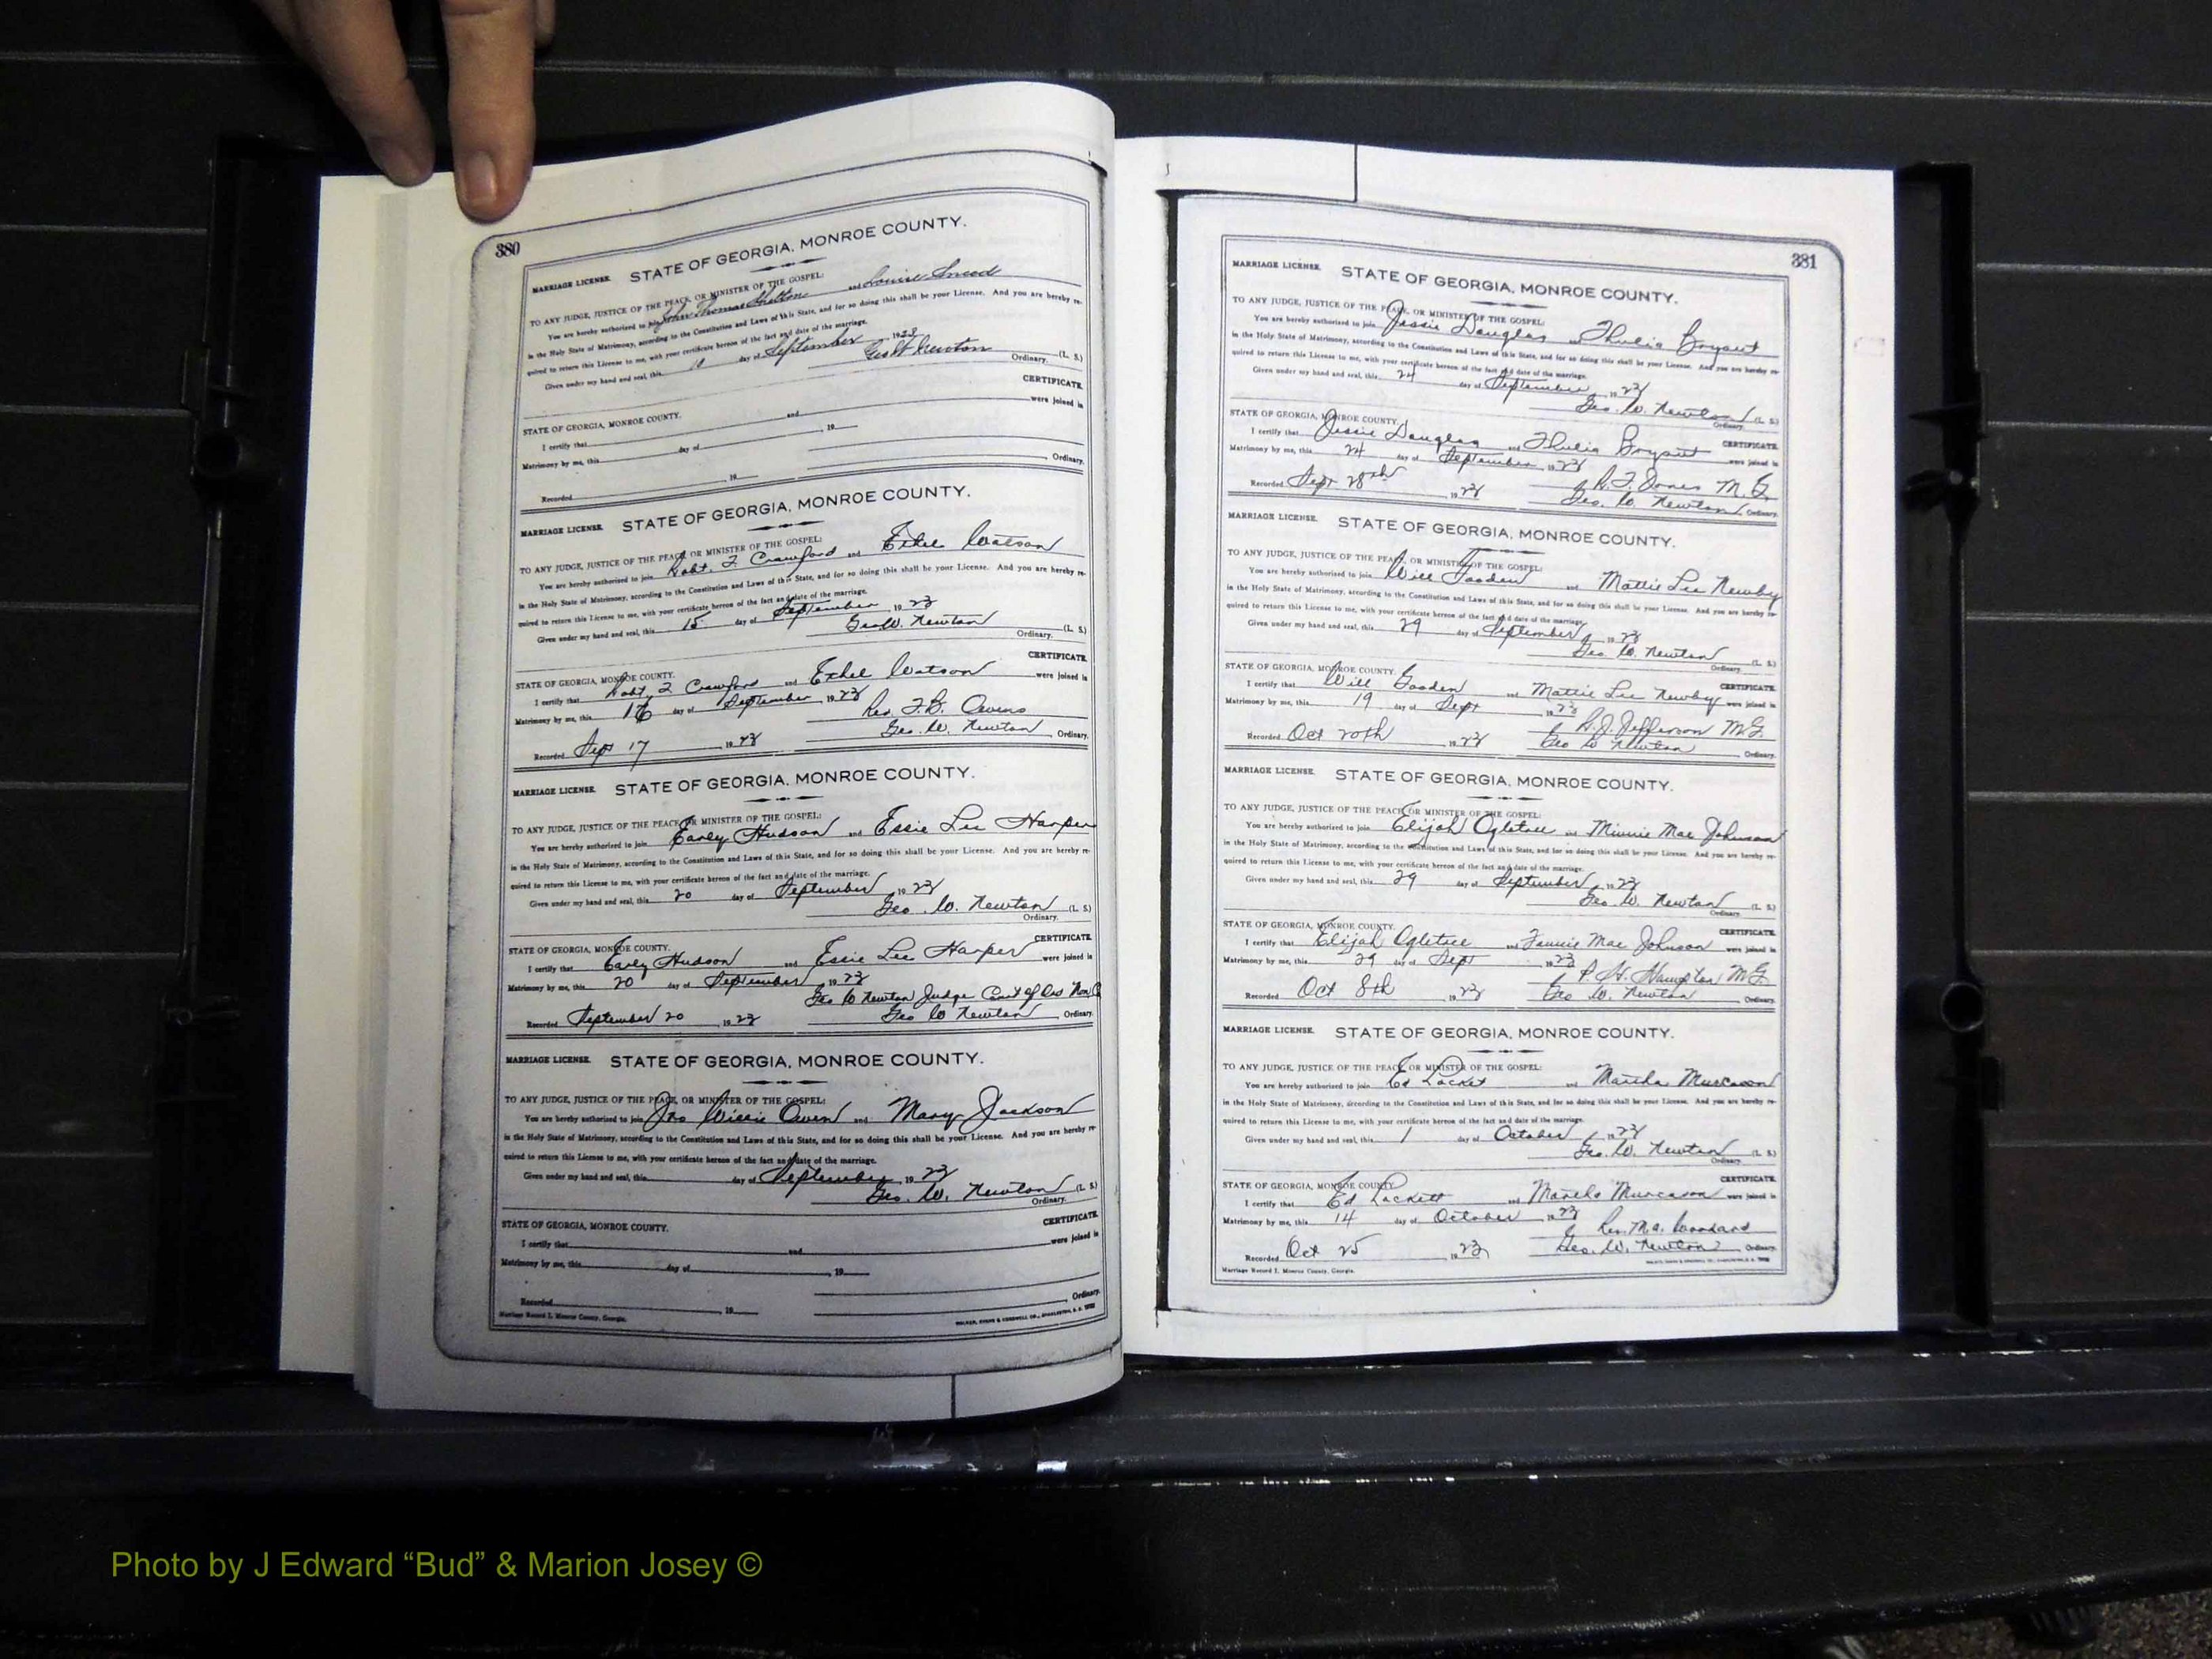 380
MARRIAGE LICENSE. STATE OF GEORGIA, MONROE COUNTY.
TO ANY JUDGE, JUSTICE OF THE PEACE, OR MINISTER OF THE GOSPEL:
You are hereby authorized to join John Thomas Shelton and Louise Sneed
in the Holy State of Matrimony, according to the Constitution and Laws of this State, and for so doing this shall be your License. And you are hereby re-
quired to return this License to me, with your certificate hereon of the fact and date of the marriage.
Given under my hand and seal, this 10 day of September 1923
Geo W Newton (L. S.)
Ordinary.
CERTIFICATE.
STATE OF GEORGIA, MONROE COUNTY.
I certify that and were joined in
Matrimony by me, this day of 19
Recorded 19 Ordinary.
MARRIAGE LICENSE. STATE OF GEORGIA, MONROE COUNTY.
TO ANY JUDGE, JUSTICE OF THE PEACE, OR MINISTER OF THE GOSPEL:
You are hereby authorized to join Robt. F. Crawford and Ethel Watson
in the Holy State of Matrimony, according to the Constitution and Laws of this State, and for so doing this shall be your License. And you are hereby re-
quired to return this License to me, with your certificate hereon of the fact and date of the marriage.
Given under my hand and seal, this 15 day of September 1923
Geo W. Newton (L. S.)
Ordinary.
CERTIFICATE.
STATE OF GEORGIA, MONROE COUNTY.
I certify that Robt. F. Crawford and Ethel Watson were joined in
Matrimony by me, this 16 day of September 1923
Rev. F. B. Owens
Recorded Sept 17 1923 Geo. W. Newton Ordinary.
MARRIAGE LICENSE. STATE OF GEORGIA, MONROE COUNTY.
TO ANY JUDGE, JUSTICE OF THE PEACE, OR MINISTER OF THE GOSPEL:
You are hereby authorized to join Early Hudson and Essie Lee Harper
in the Holy State of Matrimony, according to the Constitution and Laws of this State, and for so doing this shall be your License. And you are hereby re-
quired to return this License to me, with your certificate hereon of the fact and date of the marriage.
Given under my hand and seal, this 20 day of September 1923
Geo. W. Newton (L. S.)
Ordinary.
CERTIFICATE.
STATE OF GEORGIA, MONROE COUNTY.
I certify that Early Hudson and Essie Lee Harper were joined in
Matrimony by me, this 20 day of September 1923
Geo W Newton Judge Court of Ord Mon C
Recorded September 20 1923 Geo W Newton Ordinary.
MARRIAGE LICENSE. STATE OF GEORGIA, MONROE COUNTY.
TO ANY JUDGE, JUSTICE OF THE PEACE, OR MINISTER OF THE GOSPEL:
You are hereby authorized to join Jno Willie Owen and Mary Jackson
in the Holy State of Matrimony, according to the Constitution and Laws of this State, and for so doing this shall be your License. And you are hereby re-
quired to return this License to me, with your certificate hereon of the fact and date of the marriage.
Given under my hand and seal, this day of September 1923
Geo. W. Newton (L. S.)
Ordinary.
CERTIFICATE.
STATE OF GEORGIA, MONROE COUNTY.
I certify that and were joined in
Matrimony by me, this day of 19
Recorded 19 Ordinary.
Marriage Record I, Monroe County, Georgia.
381
MARRIAGE LICENSE. STATE OF GEORGIA, MONROE COUNTY.
TO ANY JUDGE, JUSTICE OF THE PEACE, OR MINISTER OF THE GOSPEL:
You are hereby authorized to join Jessie Douglas and Thulia Bryant
in the Holy State of Matrimony, according to the Constitution and Laws of this State, and for so doing this shall be your License. And you are hereby re-
quired to return this License to me, with your certificate hereon of the fact and date of the marriage.
Given under my hand and seal, this 24 day of September 1923
Geo. W. Newton (L. S.)
Ordinary.
STATE OF GEORGIA, MONROE COUNTY. CERTIFICATE.
I certify that Jessie Douglas and Thulia Bryant were joined in
Matrimony by me, this 24 day of September 1923
R. F. Jones M. G.
Recorded Sept 28th 1923 Geo. W. Newton Ordinary.
MARRIAGE LICENSE. STATE OF GEORGIA, MONROE COUNTY.
TO ANY JUDGE, JUSTICE OF THE PEACE, OR MINISTER OF THE GOSPEL:
You are hereby authorized to join Will Gooden and Mattie Lee Newby
in the Holy State of Matrimony, according to the Constitution and Laws of this State, and for so doing this shall be your License. And you are hereby re-
quired to return this License to me, with your certificate hereon of the fact and date of the marriage.
Given under my hand and seal, this 29 day of September 1923
Geo. W. Newton (L. S.)
Ordinary.
STATE OF GEORGIA, MONROE COUNTY. CERTIFICATE.
I certify that Will Gooden and Mattie Lee Newby were joined in
Matrimony by me, this 19 day of Sept 1923
R. J. Jefferson M.G.
Recorded Oct 20th 1923 Geo W Newton Ordinary.
MARRIAGE LICENSE. STATE OF GEORGIA, MONROE COUNTY.
TO ANY JUDGE, JUSTICE OF THE PEACE, OR MINISTER OF THE GOSPEL:
You are hereby authorized to join Elijah Ogletree and Minnie Mae Johnson
in the Holy State of Matrimony, according to the Constitution and Laws of this State, and for so doing this shall be your License. And you are hereby re-
quired to return this License to me, with your certificate hereon of the fact and date of the marriage.
Given under my hand and seal, this 29 day of September 1923
Geo. W. Newton (L. S.)
Ordinary.
STATE OF GEORGIA, MONROE COUNTY. CERTIFICATE.
I certify that Elijah Ogletree and Fannie Mae Johnson were joined in
Matrimony by me, this 29 day of Sept 1923
P. H. Hampton M.G.
Recorded Oct 8th 1923 Geo W. Newton Ordinary.
MARRIAGE LICENSE. STATE OF GEORGIA, MONROE COUNTY.
TO ANY JUDGE, JUSTICE OF THE PEACE, OR MINISTER OF THE GOSPEL:
You are hereby authorized to join Ed Lacket and Martha Murcason
in the Holy State of Matrimony, according to the Constitution and Laws of this State, and for so doing this shall be your License. And you are hereby re-
quired to return this License to me, with your certificate hereon of the fact and date of the marriage.
Given under my hand and seal, this 1 day of October 1923
Geo. W. Newton (L. S.)
Ordinary.
STATE OF GEORGIA, MONROE COUNTY. CERTIFICATE.
I certify that Ed Lackett and Martha Murcason were joined in
Matrimony by me, this 14 day of October 1923
Rev. M. A. Woodard
Recorded Oct 25 1923 Geo. W. Newton Ordinary.
Marriage Record I, Monroe County, Georgia.
Photo by J Edward “Bud” & Marion Josey ©